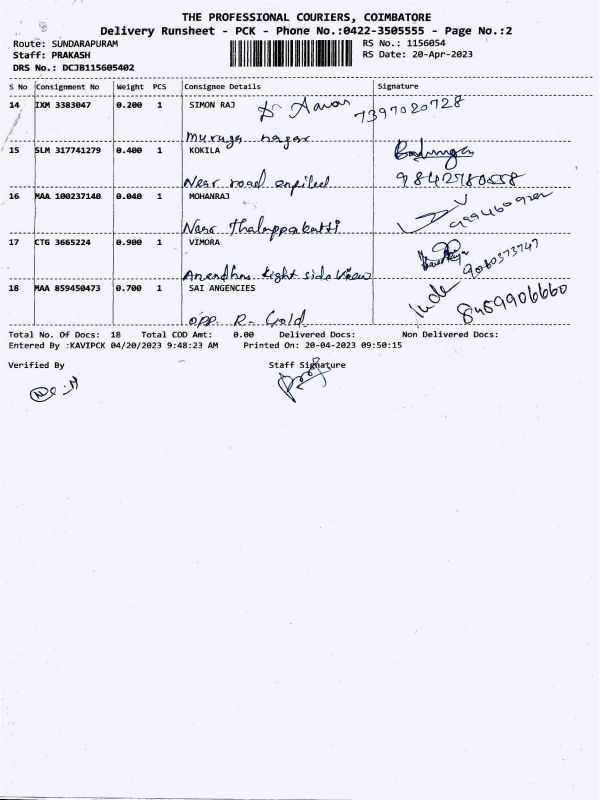 THE PROFESSIONAL COURIERS, COIMBATORE
Delivery Runsheet - PCK - Phone No.:0422-3505555 - Page No.:2
Route: SUNDARAPURAM RS No.: 1156054
Staff: PRAKASH RS Date: 20-Apr-2023
DRS No.: DCJB115605402
S No Consignment No Weight PCS Consignee Details Signature
14 IXM 3383047 0.200 1 SIMON RAJ 7397020728
Muruga nagar
15 SLM 317741279 0.400 1 KOKILA
Near road
16 MAA 100237140 0.040 1 MOHANRAJ
Near Thalappakatti
17 CTG 3665224 0.900 1 VIMORA 9080373747
right side
18 MAA 859450473 0.700 1 SAI ANGENCIES 8489906660
opp. R- Gold
Total No. Of Docs: 18 Total COD Amt: 0.00 Delivered Docs: Non Delivered Docs:
Entered By :KAVIPCK 04/20/2023 9:48:23 AM Printed On: 20-04-2023 09:50:15
Verified By Staff Signature